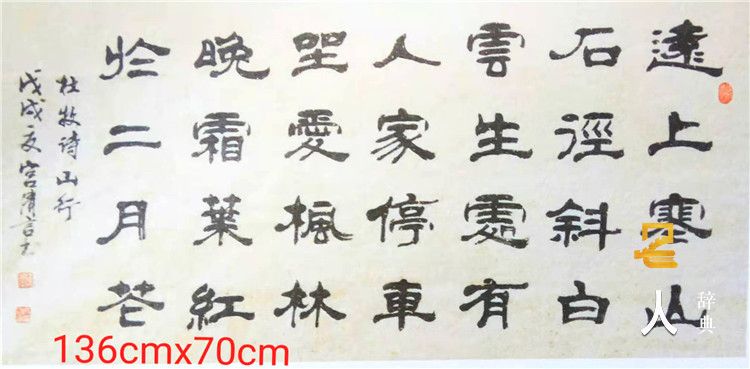 遠上寒山
石徑斜白
雲生處有
人家停車
坐愛楓林
晚霜葉紅
於二月花
杜牧诗山行
戊戌夏宫
136cmx70cm
人
辞典